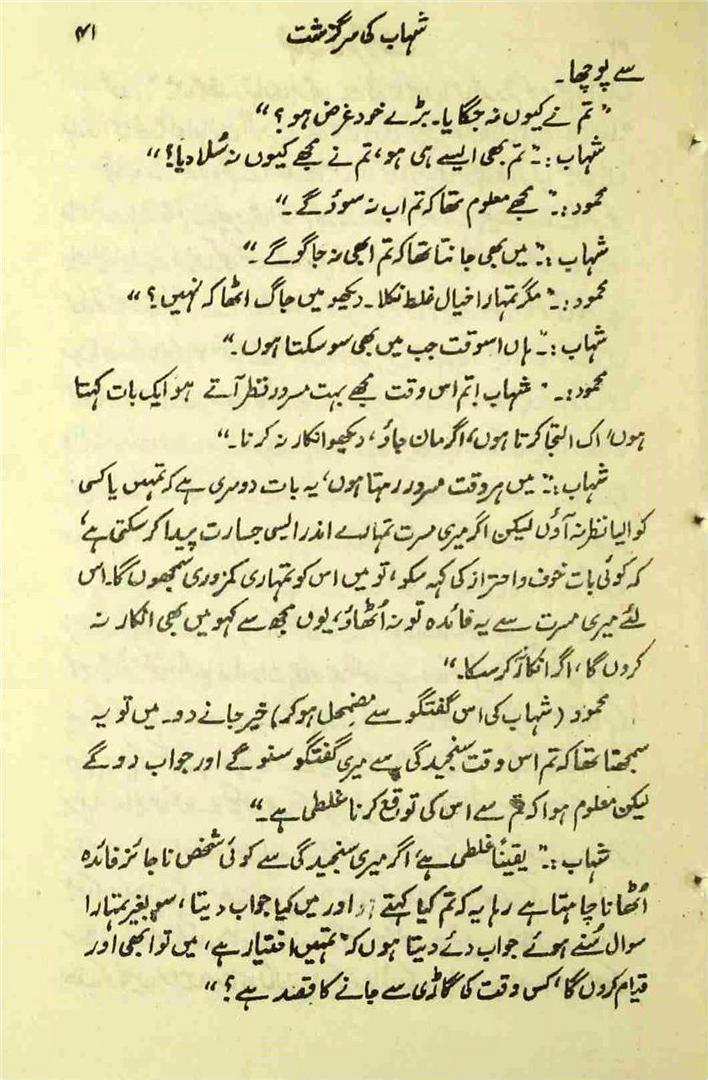 شہاب کی سرگزشت
۴۱
سے پوچھا۔
"تم نے کیوں نہ جگایا۔ بڑے خود غرض ہو؟"
شہاب :۔ "تم بھی ایسے ہی ہو، تم نے مجھے کیوں نہ سُلا دیا؟"
محمود :۔ "مجھے معلوم تھا کہ تم اب نہ سوؤگے۔"
شہاب :۔ "میں بھی جانتا تھا کہ تم ابھی نہ جاگوگے۔"
محمود :۔ "مگر تمہارا خیال غلط نکلا۔ دیکھو میں جاگ اٹھا کہ نہیں؟"
شہاب :۔ ہاں اسوقت جب میں بھی سو سکتا ہوں۔"
محمود :۔ "شہاب! تم اس وقت مجھے بہت مسرور نظر آتے ہو ایک بات کہتا
ہوں، اک التجا کرتا ہوں، اگر مان جاؤ، دیکھو انکار نہ کرنا۔"
شہاب :۔ "میں ہر وقت مسرور رہتا ہوں، یہ بات دوسری ہے کہ تمہیں یا کسی
کو ایسا نظر نہ آؤں لیکن اگر میری مسرت تمہارے اندر ایسی جسارت پیدا کر سکتی ہے،
کہ کوئی بات خوف و احتراز کی کہہ سکو، تو میں اس کو تمہاری کمزوری سمجھوں گا۔ اس
لئے میری مسرت سے یہ فائدہ تو نہ اُٹھاؤ، یوں مجھ سے کہو میں بھی انکار نہ
کروں گا، اگر انکار نہ کر سکا۔"
محمود (شہاب کی اس گفتگو سے مضمحل ہو کر) خیر جانے دو۔ میں تو یہ
سمجھتا تھا کہ تم اس وقت سنجیدگی سے میری گفتگو سنوگے اور جواب دوگے
لیکن معلوم ہوا کہ تم سے اس کی توقع کرنا غلطی ہے۔"
شہاب :۔ "یقیناً غلطی ہے، اگر میری سنجیدگی سے کوئی شخص ناجائز فائدہ
اُٹھانا چاہتا ہے رہا یہ کہ تم کیا کہتے اور میں کیا جواب دیتا، سو بغیر تمہارا
سوال سُنے ہوئے جواب دئے دیتا ہوں کہ "تمہیں اختیار ہے، میں تو ابھی اور
قیام کروں گا، کس وقت کی گاڑی سے جانے کا قصد ہے؟"